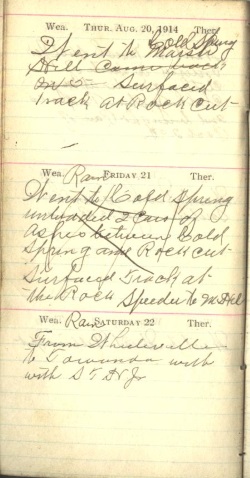 Wea. THUR. AUG. 20, 1914 Ther.
Cold Spring
Went to
Hill Came back
Surfaced
Track at Rock cut
Wea. Rain FRIDAY 21 Ther.
Went to Cold Spring
unloaded 2 cars of
Ashes between Cold
Spring and Rock cut
Surfaced Track at
the Rock Speeder to M Hill
Wea. Rain SATURDAY 22 Ther.
From
to Towanda with
with S T D Jr